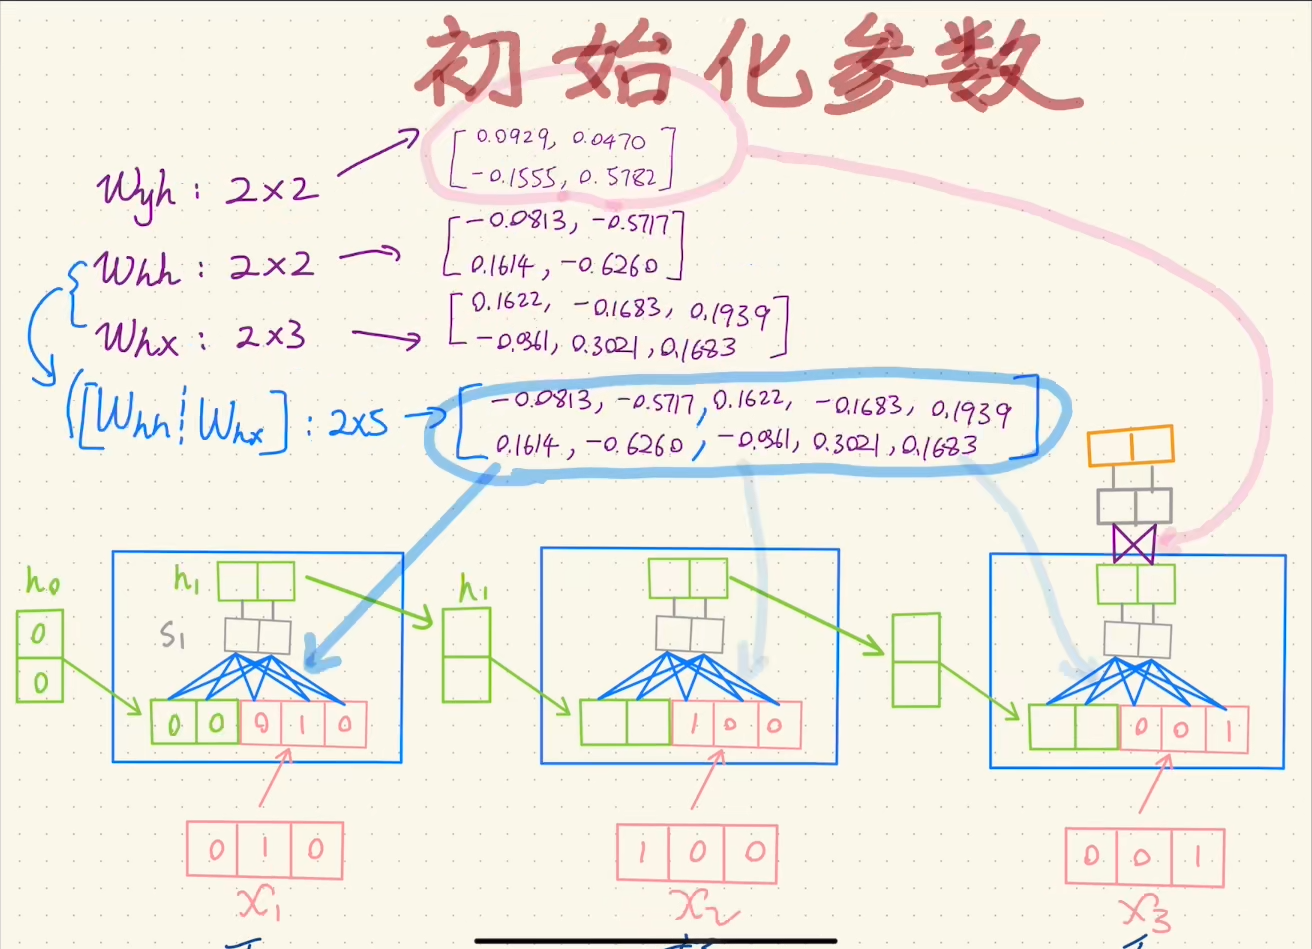 初始化参数
Wyh : 2×2
[0.0929, 0.0470
-0.1555, 0.5782]
Whh : 2×2
[-0.0813, -0.5717]
0.1614, -0.6260
Whx : 2×3
[0.1622, -0.1683, 0.1939
-0.0361, 0.3021, 0.1683]
([Whh¦Whx] : 2×5
[-0.0813, -0.5717, 0.1622, -0.1683, 0.1939
0.1614, -0.6260, -0.0361, 0.3021, 0.1683]
h0
0
0
h1
S1
0 0 0 1 0
h1
1 0 0
0 0 1
0 1 0
1 0 0
0 0 1
x1
x2
x3